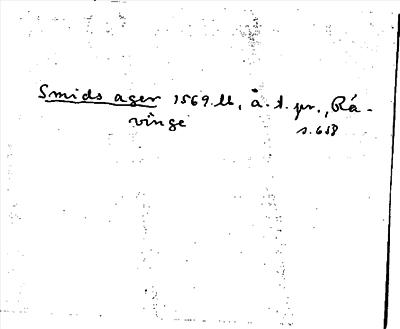 Smids ager 1569. ll, å. t. pr., Rá-
vinge
s. 658